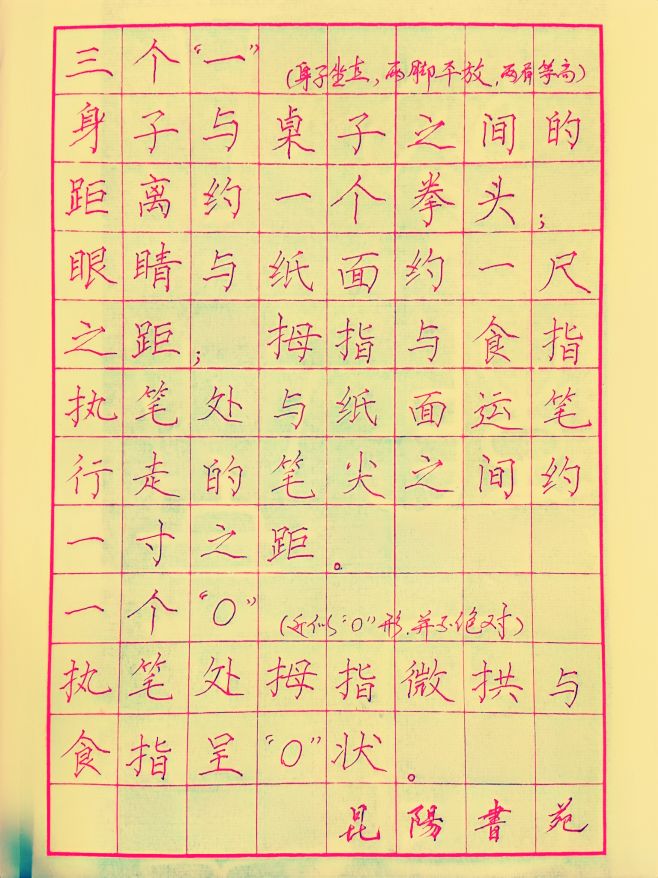 三个“一”（身子坐直，两脚平放，两肩等高）
身子与桌子之间的
距离约一个拳头；
眼睛与纸面约一尺
之距；拇指与食指
执笔处与纸面运笔
行走的笔尖之间约
一寸之距。
一个“0”（近似“0”形，并不绝对）
执笔处拇指微拱与
食指呈“0”状。
昆陽書苑